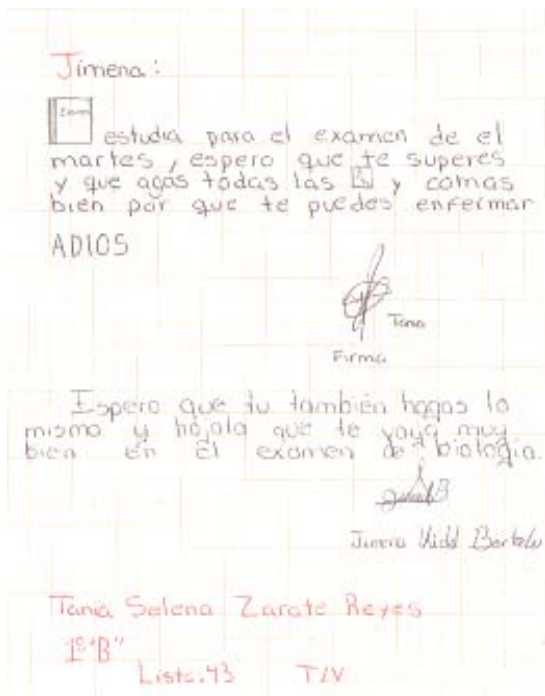 Jimena:
estudia para el examen de el
martes, espero que te superes
y que agas todas las y comas
bien por que te puedes enfermar
ADIOS
Tania
Firma
Espero que tu también hagas lo
mismo y hojala que te vaya muy
bien en el examen de biologia.
Jimena Vidal
Tania Selena Zarate Reyes
1° "B"
Lista.43 T/V